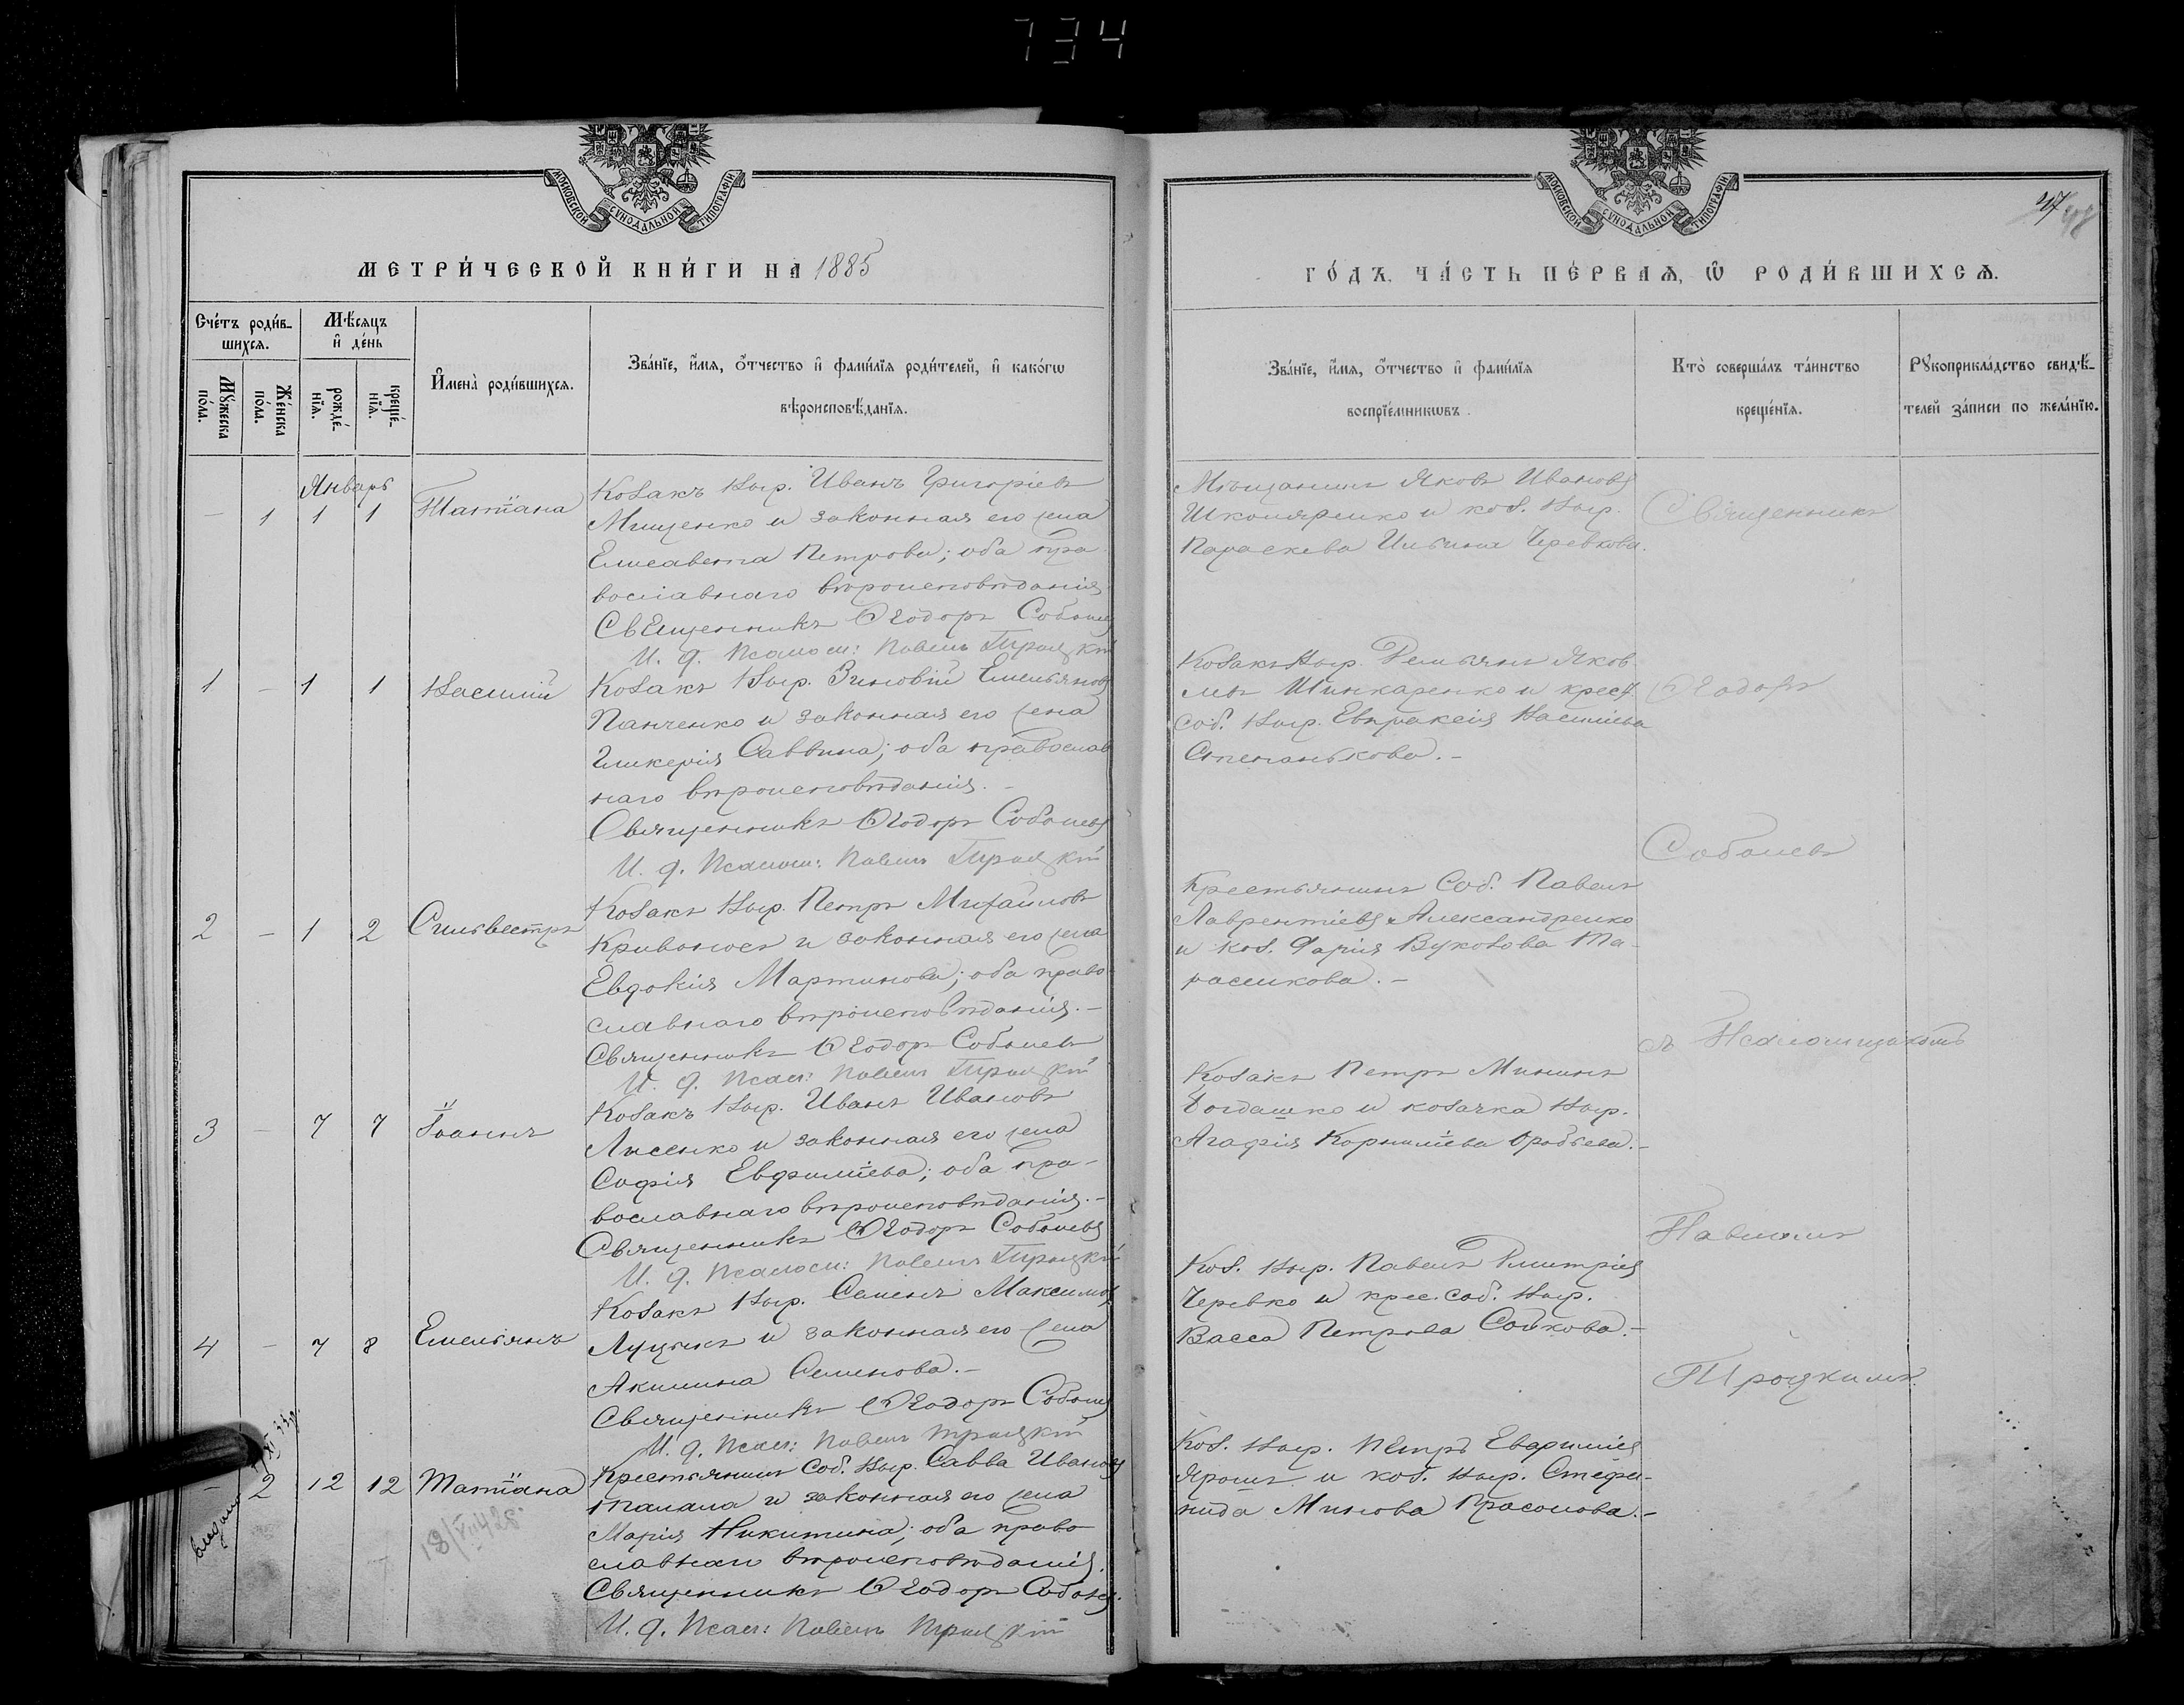 734
МОСКОВСКОЙ СѴНОДАЛЬНОЙ ТИПОГРАФІИ
МЕТРИ́ЧЕСКОЙ КНИ́ГИ НА 1885
Сче́тъ роди́в-
шихся.
Мѣ́сяцъ
и҆ де́нь
Мꙋ́жеска
по́ла.
Же́нска
по́ла.
рожде́-
нїѧ.
креще́-
нїѧ.
И҆мена̀ роди́вшихсѧ.
Зва́нїе, и҆́мѧ, ѻ҆́тчество и҆ фами́лїѧ роди́телей, и҆ како́гѡ
вѣроисповѣ́данїѧ.
Январь
– 1 1 1 Татіана
Козакъ Выр. Иванъ Григоріевъ
Мищенко и законная его жена
Елисавета Петрова; оба пра-
вославнаго вѣроисповѣданія
Священникъ Ѳеодоръ Соболев
И. д. Псалом: Павелъ Троицкій
1 – 1 1 Василій
Козакъ Выр. Зиновій Емельяновъ
Панченко и законная его жена
Гликерія Саввина; оба православ
наго вѣроисповѣданія. –
Священникъ Ѳеодоръ Соболевъ
И. д. Псалом: Павелъ Троицкій
2 – 1 2 Сильвестръ
Козакъ Выр. Петръ Михайловъ
Кривоносъ и законная его жена
Евдокія Мартинова; оба право-
славнаго вѣроисповѣданія. –
Священникъ Ѳеодоръ Соболевъ
И. д. Псал: Павелъ Троицкій
3 – 7 7 Іоаннъ
Козакъ Выр. Иванъ Ивановъ
Лисенко и законная его жена
Софія Евфиміева; оба пра-
вославнаго вѣроисповѣданія. –
Священникъ Ѳеодоръ Соболевъ
И. д. Псалом: Павелъ Троицкій
4 – 7 8 Емельянъ
Козакъ Выр. Семенъ Максимов
Луцикъ и законная его жена
Акилина Семенова. –
Священникъ Ѳеодоръ Соболев
И. д. Псал: Павелъ Троицкій
– 2 12 12 Татіана
Крестьянинъ Соб. Выр. Савва Ивановъ
Талала и законная его жена
Марія Никитина; оба право
славнаго вѣроисповѣданія.
Священникъ Ѳеодоръ Соболев.
И. д. Псал: Павелъ Троицкій
МОСКОВСКОЙ СѴНОДАЛЬНОЙ ТИПОГРАФІИ
47 48
ГО́ДЪ, ЧА́СТЬ ПЕ́РВАѦ, Ѽ РОДИ́ВШИХСѦ.
Зва́нїе, и҆́мѧ, ѻ҆́тчество и҆ фами́лїѧ
воспрїе́мникѡвъ.
Кто̀ соверша́лъ та́инство
креще́нїѧ.
Рꙋкоприкла́дство свидѣ́-
телей за́писи по жела́нїю.
Мѣщанинъ Яковъ Ивановъ
Школяренко и коз. Выр.
Параскева Ильина Черевкова.
Козакъ Выр. Демьянъ Яков-
левъ Шинкаренко и крест.
соб. Выр. Евпраксія Василіева
Степанькова. –
Крестьянинъ Соб. Павелъ
Лаврентіевъ Александренко
и коз. Дарія Вуколова Та-
расикова. –
Козакъ Петръ Мининъ
Богдашко и козачка Выр.
Агафія Корниліева –
Коз. Выр. Павелъ Дмитріев
Черевко и крес. соб. Выр.
Васса Петрова Сойкова. –
Коз. Выр. Петръ
Ярошъ и коз. Выр. Стефа-
нида Минова Прасолова. –
Священникъ
Ѳеодоръ
Соболевъ
съ Псаломщикомъ
Павломъ
Троицкимъ.